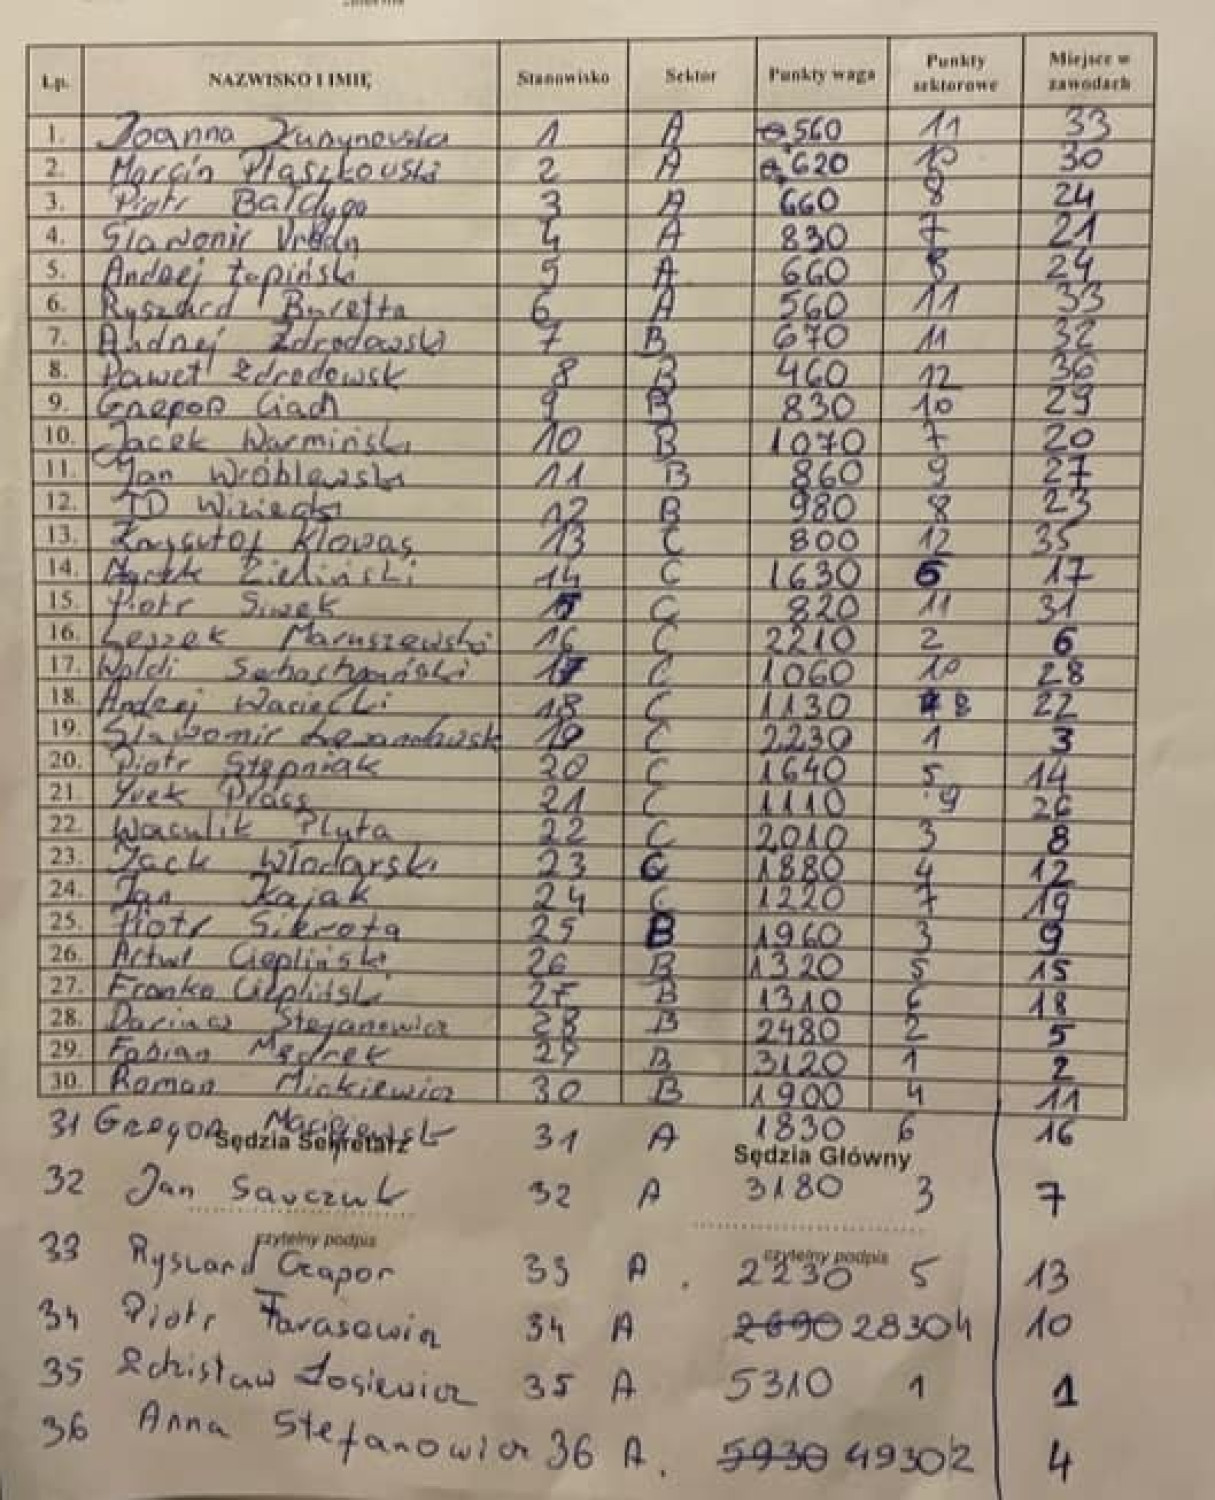 Lp. NAZWISKO I IMIĘ Stanowisko Sektor Punkty waga Punkty sektorowe Miejsce w zawodach
1. Joanna 1 A 560 11 33
2. Marcin Ptaszkowski 2 A 620 10 30
3. Piotr Bałdyga 3 A 660 8 24
4. Sławomir 4 A 830 7 21
5. Andrzej Łapiński 5 A 660 8 24
6. Ryszard Byretta 6 A 560 11 33
7. Andrzej Zdrodowski 7 B 670 11 32
8. Paweł Zdrodowsk 8 B 460 12 36
9. Grzegorz Ciach 9 B 830 10 29
10. Jacek Warmiński 10 B 1070 7 20
11. Jan Wróblewski 11 B 860 9 27
12. 12 B 980 8 23
13. Krzysztof Klowas 13 C 800 12 35
14. Marek Zieliński 14 C 1630 6 17
15. Piotr Siwek 15 C 820 11 31
16. Leszek Maruszewski 16 C 2210 2 6
17. Waldi 17 C 1060 10 28
18. Andrzej Wasiecki 18 C 1130 8 22
19. Sławomir 19 C 2230 1 3
20. Piotr Stępniak 20 C 1640 5 14
21. 21 C 1110 9 26
22. Płyta 22 C 2010 3 8
23. Jack Włodarski 23 C 1880 4 12
24. Jan Kajak 24 C 1220 7 19
25. Piotr Sikrota 25 B 1960 3 9
26. Artur Ciepliński 26 B 1320 5 15
27. Franko Ciepliński 27 B 1310 6 18
28. Dariusz Stefanowicz 28 B 2480 2 5
29. Fabian Mędrek 29 B 3120 1 2
30. Roman Mickiewicz 30 B 1900 4 11
31 Grzegorz 31 A 1830 6 16
Sędzia Sekretarz Sędzia Główny
32 Jan Sawczuk 32 A 3180 3 7
czytelny podpis czytelny podpis
33 Ryszard Czapor 33 A. 2230 5 13
34 Piotr Tarasewicz 34 A 2690 2830 4 10
35 Zdzisław Łosiewicz 35 A 5310 1 1
36 Anna Stefanowicz 36 A. 5930 4930 2 4